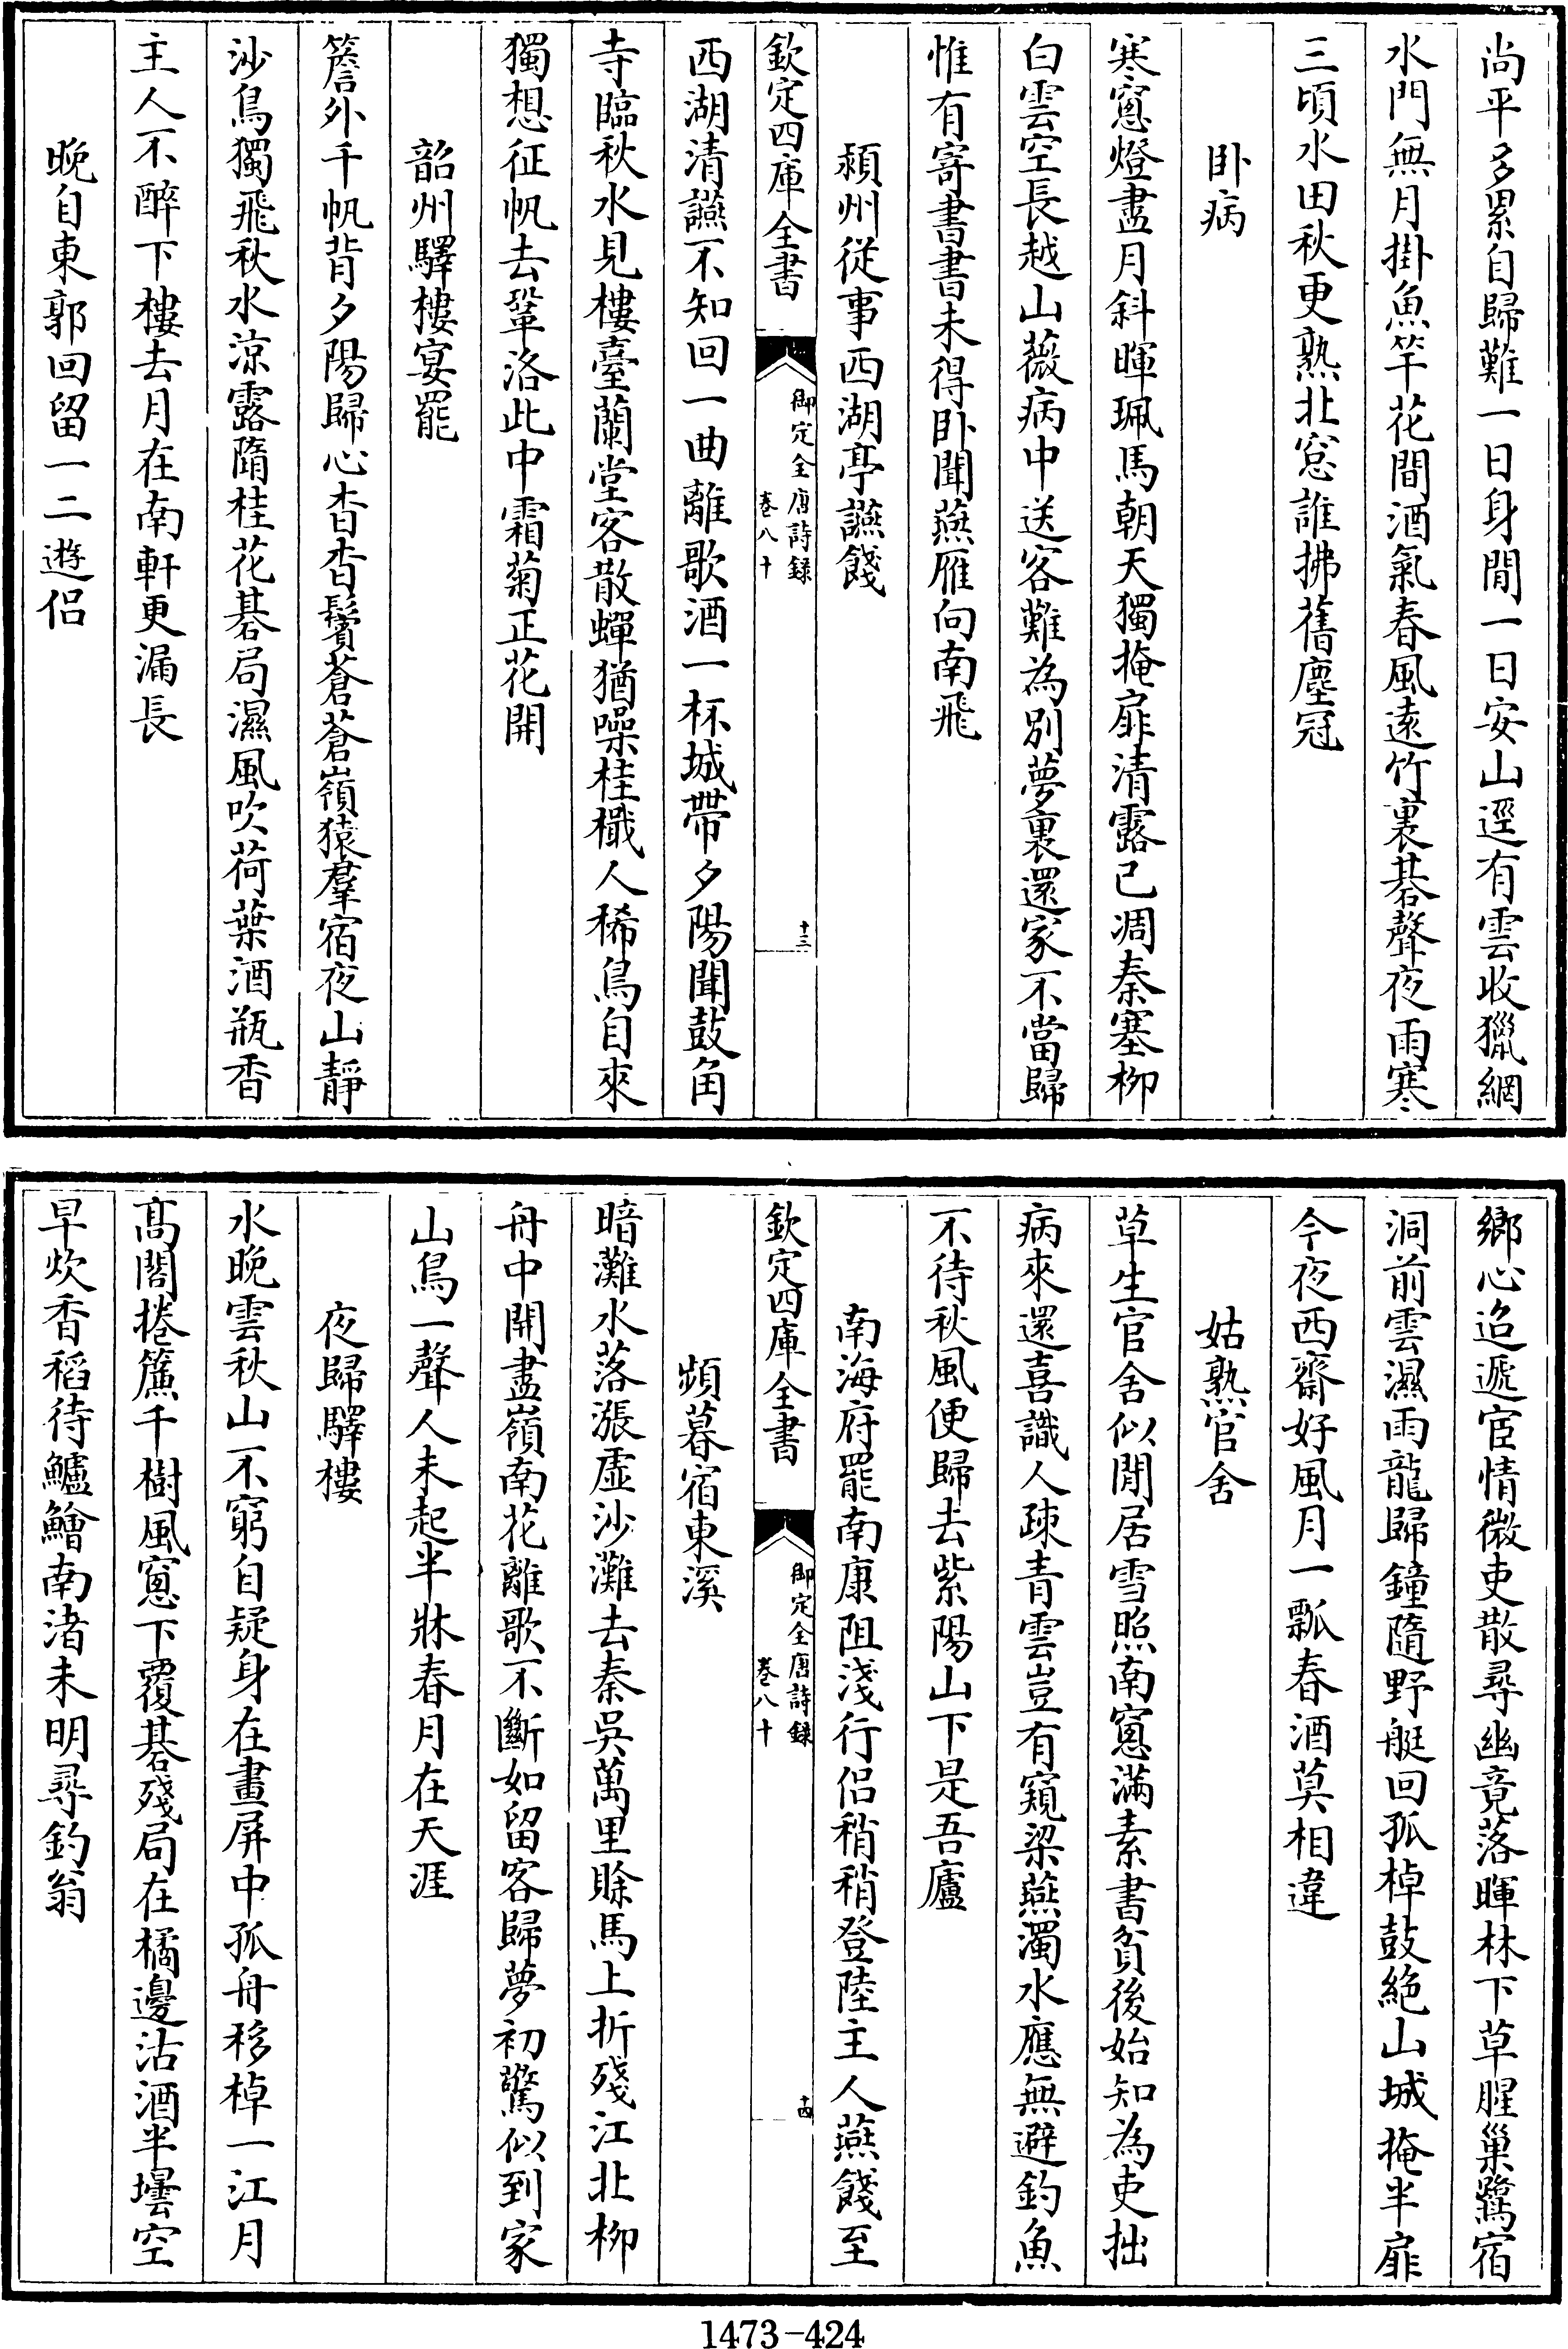 尚平多累自歸難一日身閒一日安山逕有雲收獵網
水門無月掛魚竿花間酒氣春風遠竹裏碁聲夜雨寒
三頃水田秋更熟北窓誰拂舊塵冠
卧病
寒窻燈盡月斜暉珮馬朝天獨掩扉清露已凋秦塞柳
白雲空長越山薇病中送客難為別夢裏還家不當歸
惟有寄書書未得卧聞燕雁向南飛
潁州從事西湖亭讌餞
欽定四庫全書
御定全唐詩録
卷八十
十三
西湖清讌不知回一曲離歌酒一杯城帶夕陽聞鼓角
寺臨秋水見樓臺蘭堂客散蟬猶噪桂檝人稀鳥自來
獨想征帆去鞏洛此中霜菊正花開
韶州驛樓宴罷
簷外千帆背夕陽歸心杳杳鬢蒼蒼嶺猿羣宿夜山靜
沙鳥獨飛秋水涼露隋桂花碁局濕風吹荷葉酒瓶香
主人不醉下樓去月在南軒更漏長
晚自東郭回留一二遊侣
鄉心迢遞宦情微吏散尋幽竟落暉林下草腥巢鷺宿
洞前雲濕雨龍歸鐘隨野艇回孤棹鼓絶山城掩半扉
今夜西齋好風月一瓢春酒莫相違
姑熟官舍
草生官舍似閒居雪照南窻滿素書貧後始知為吏拙
病來還喜識人疎青雲豈有窺梁燕濁水應無避釣魚
不待秋風便歸去紫陽山下是吾廬
南海府罷南康阻淺行侣稍稍登陸主人燕餞至
頻暮宿東溪
欽定四庫全書
御定全唐詩録
卷八十
十四
暗灘水落漲虚沙灘去秦吳萬里賖馬上折殘江北柳
舟中開盡嶺南花離歌不斷如留客歸夢初驚似到家
山鳥一聲人未起半牀春月在天涯
夜歸驛樓
水晚雲秋山不窮自疑身在畫屏中孤舟移棹一江月
髙閣捲簾千樹風窻下覆碁殘局在橘邊沽酒半壜空
早炊香稻待鱸鱠南渚未明尋釣翁
1473-424